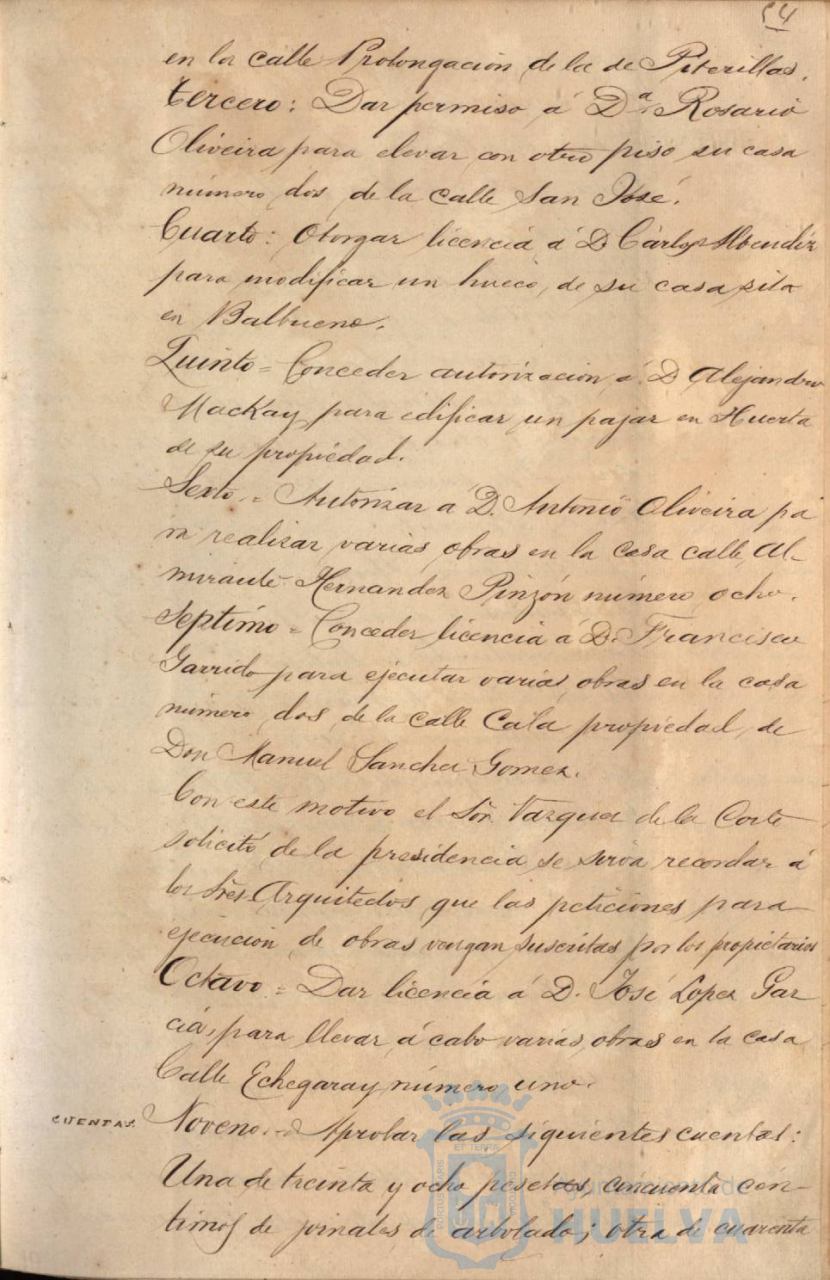 54
en la calle Prolongación de la de Puterillas.
tercero: Dar permiso á Dª Rosario
Oliveira para elevar con otro piso su casa
número dos de la calle San José.
Cuarto: Otorgar licencia á D Cárlos
para modificar un hueco, de su casa sita
en Balbueno.
Quinto = Conceder autorización á D Alejandro
MacKay para edificar un pajar en Huerta
de su propiedad.
Sexto = Autorizar á D. Antonio Oliveira pa
ra realizar varias obras en la casa calle Al-
mirante Hernandez Pinzón número ocho.
Septimo = Conceder licencia á D. Francisco
Garrido para ejecutar varias obras en la casa
número dos de la calle Cala propiedad de
Don Manuel Sanchez Gomez.
Con este motivo el Sr. Vazquez de la Corte
solicitó de la presidencia se sirva recordar á
los Sres Arquitectos que las peticiones para
ejecución de obras vengan suscritas por los propietarios
Octavo = Dar licencia á D. José Lopez Gar
cia, para llevar á cabo varias obras en la casa
Calle Echegaray número uno.
CUENTAS. Noveno. = Aprobar las siguientes cuentas:
Una de treinta y ocho pesetas, cincuenta cén-
timos de jornales de arbolado; otra de cuarenta
Ayuntamiento de
HUELVA